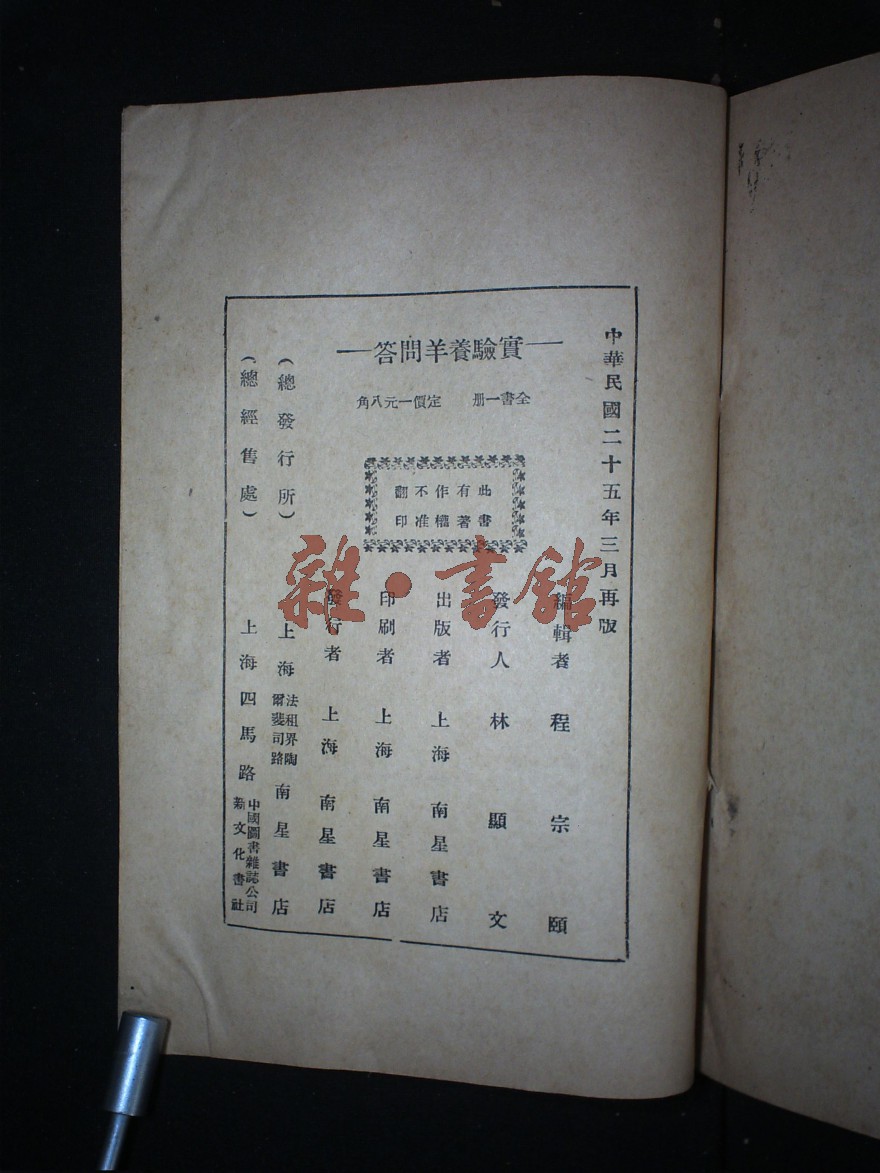 中華民國二十五年三月再版
實驗養羊問答
全書一册 定價一元八角
此書
有著
作權
不准
翻印
編輯者 程宗頤
發行人 林顯文
出版者 上海南星書店
印刷者 上海南星書店
發行者 上海南星書店
(總發行所) 上海法租界陶爾斐司路南星書店
(總經售處) 上海四馬路中國圖書雜誌公司
新文化書社
雜·書館